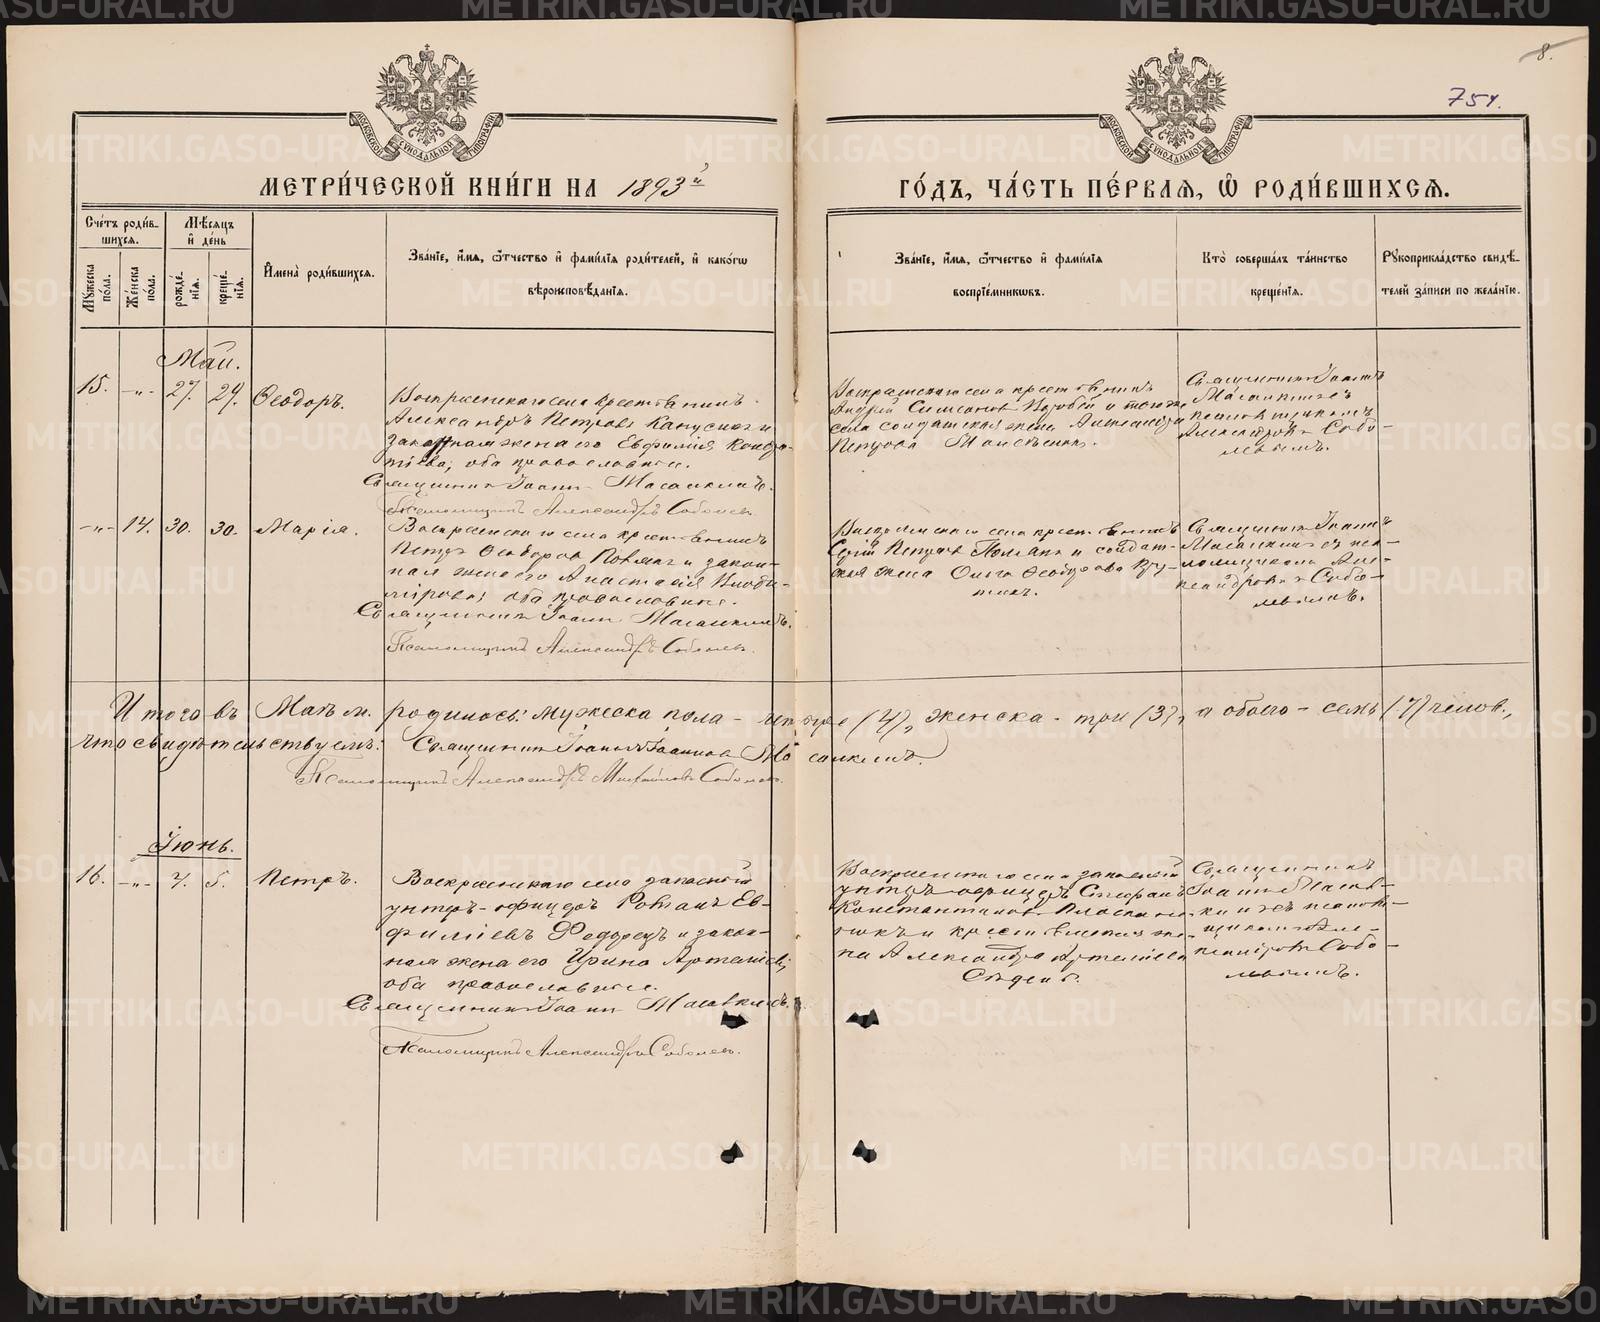 8.
754.
МЕТРИ́ЧЕСКОЙ КНИ́ГИ НА 1893й
ГО́ДЪ, ЧА́СТЬ ПЕ́РВАЯ, Ѡ РОДИ́ВШИХСЯ.
Сче́тъ роди́вшихся.
Мѣ́сяцъ и де́нь
Му́жеска по́ла.
Же́нска по́ла.
рожде́нїя.
креще́нїя.
Имена̀ роди́вшихся.
Зва́нїе, и́мя, ѻ́тчество и фами́лїя роди́телей, и како́гѡ
вѣроисповѣ́данїя.
Зва́нїе, и́мя, ѻ́тчество и фами́лїя
воспрїе́мникѡвъ.
Кто̀ соверша́лъ та́инство
креще́нїя.
Рукоприкла́дство свидѣ́-
телей за́писи по жела́нїю.
Май.
15. -"- 27. 29. Ѳеодоръ.
Воскресенскаго села крестьянинъ
Александръ Петровъ и
законная жена его Евфимія Кондра-
тіева, оба православные.
Священникъ Іоаннъ
Псаломщикъ Александръ Соболевъ.
Воскресенскаго села крестьянинъ
Андрей и тогоже
села солдатская жена Александра
Петрова
Священникъ Іоаннъ
псаломщикомъ
Александромъ Собо-
левымъ.
-"- 14. 30. 30. Марія.
Воскресенскаго села крестьянинъ
Петръ Ѳеодоровъ и закон-
ная жена его Анастасія Влади-
мірова; оба православные.
Священникъ Іоаннъ
Псаломщикъ Александръ Соболевъ.
Воскресенскаго села крестьянинъ
Петровъ и солдат-
ская жена Ольга Ѳеодорова
Священникъ Іоаннъ
съ пса-
ломщикомъ Але-
ксандромъ Собо-
левымъ.
Итого въ Маѣ м. родилось: мужеска пола - четыре (4), женска - три (3), а обоего - семь (7) челов.,
что свидѣтельствуемъ: Священникъ Іоаннъ Іоанновъ
Псаломщикъ Александръ Михайловъ Соболевъ.
Іюнь.
16. -"- 4. 5. Петръ.
Воскресенскаго села запасный
унтеръ-офицеръ Романъ Ев-
фиміевъ Федорецъ и закон-
ная жена его Ирина Артеміева;
оба православные.
Священникъ Іоаннъ
Псаломщикъ Александръ Соболевъ.
Воскресенскаго села запасный
унтеръ-офицеръ Стефанъ
Константиновъ
и крестьянская же-
на Александра Артеміева
Священникъ
Іоаннъ
псалом-
щикомъ Але-
ксандромъ Собо-
левымъ.
METRIKI.GASO-URAL.RU